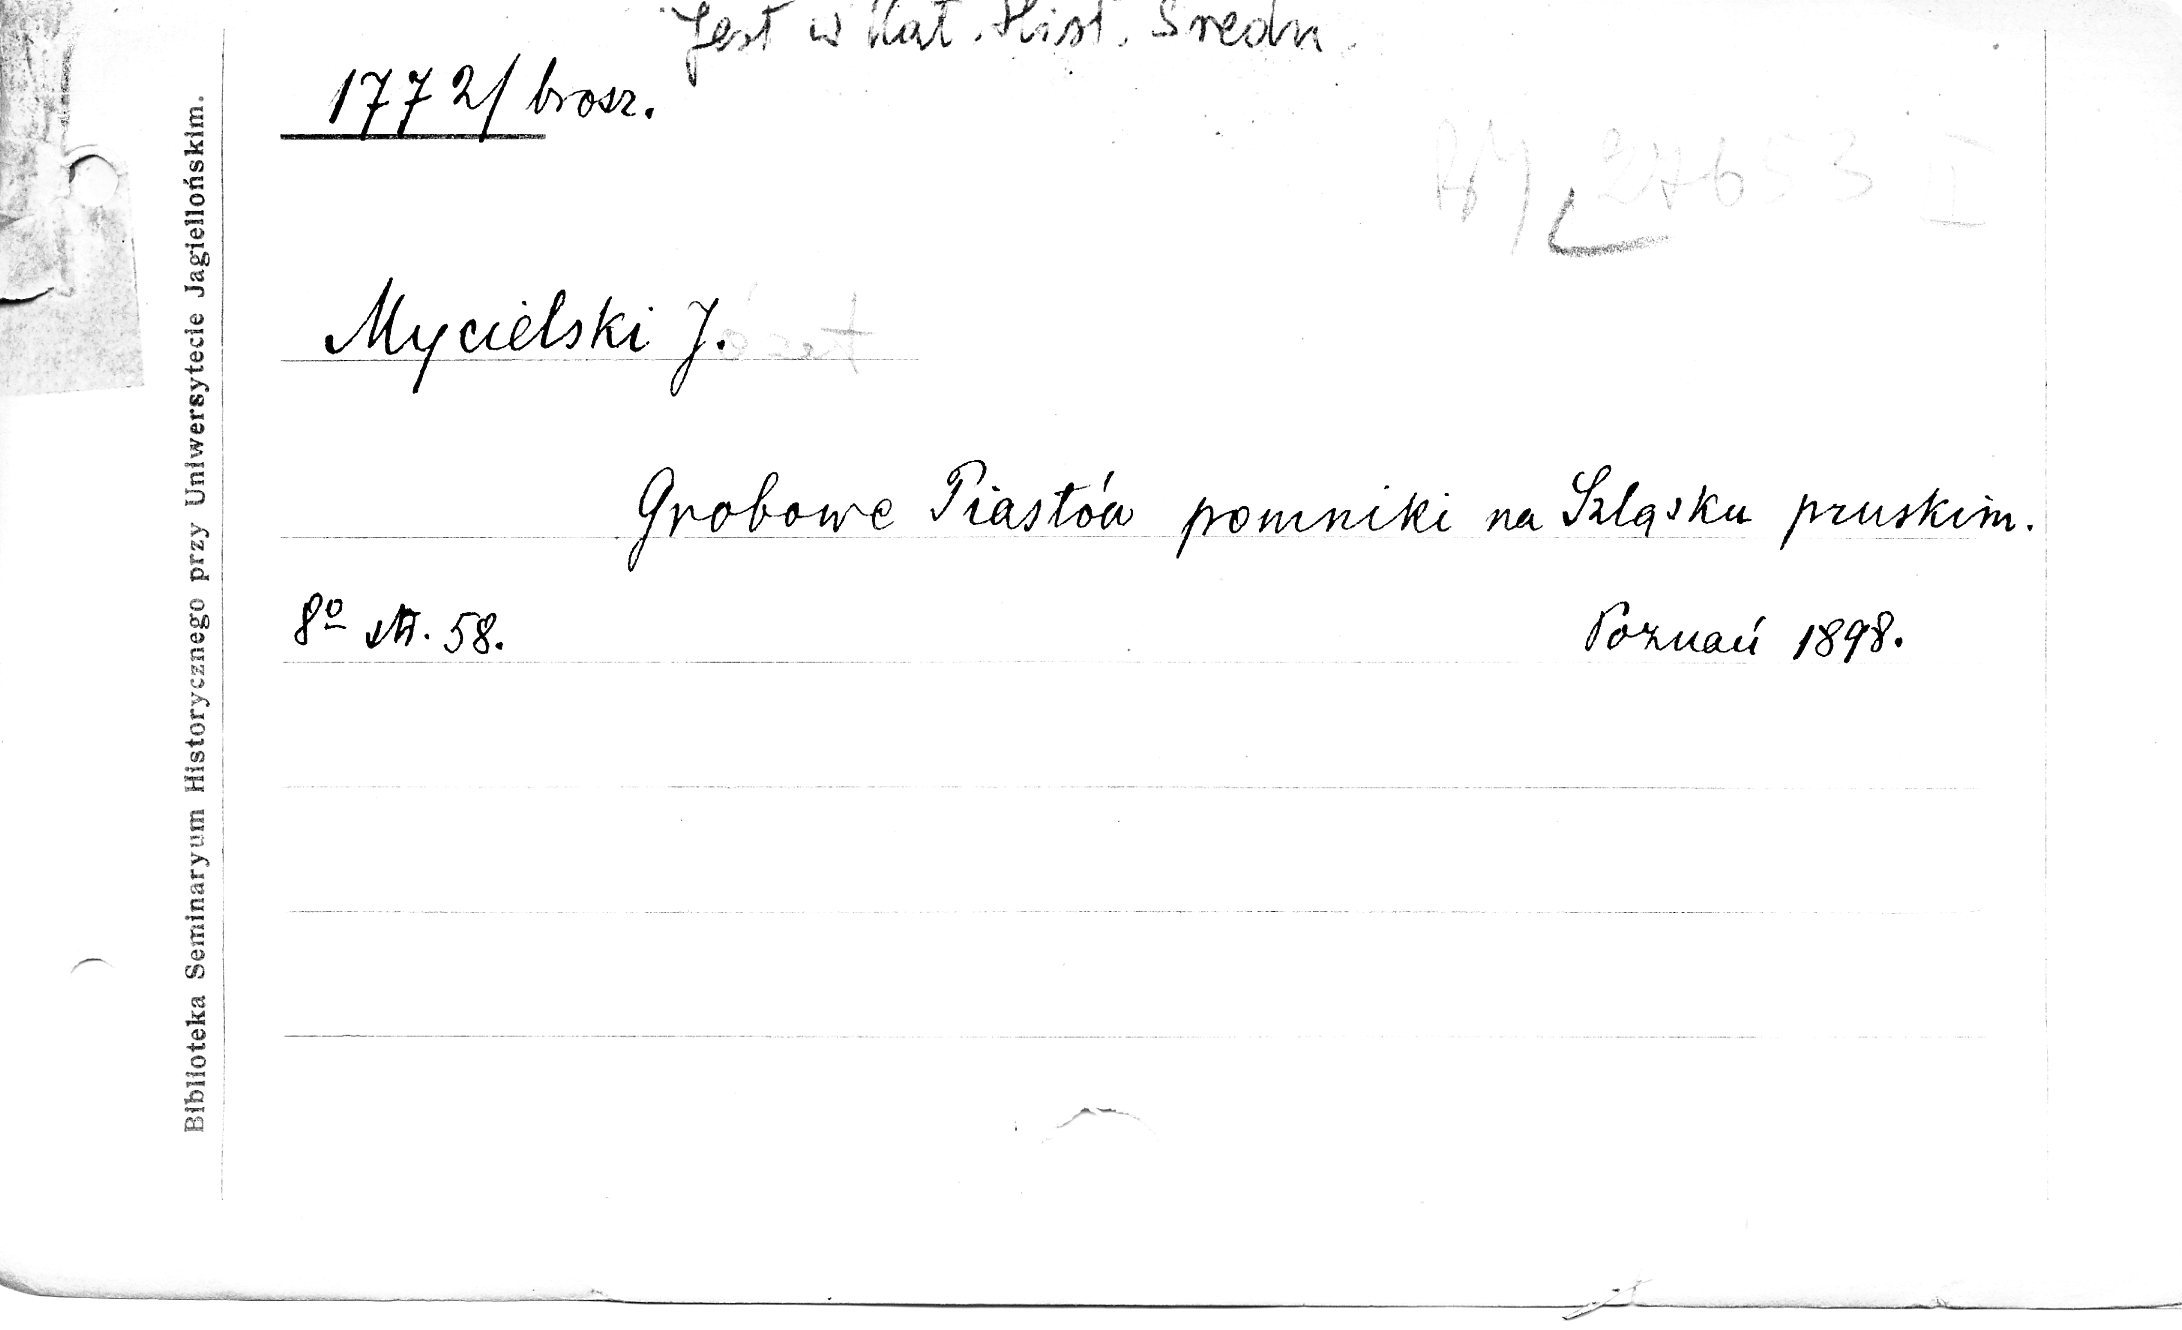 Jest w Kat. Hist. Średn.
1772/ brosz.
27653 II
Mycielski J.ózef
Grobowe Piastów pomniki na Szląsku pruskim.
8º str. 58.
Poznań 1898.
Biblioteka Seminaryum Historycznego przy Uniwersytecie Jagiellońskim.